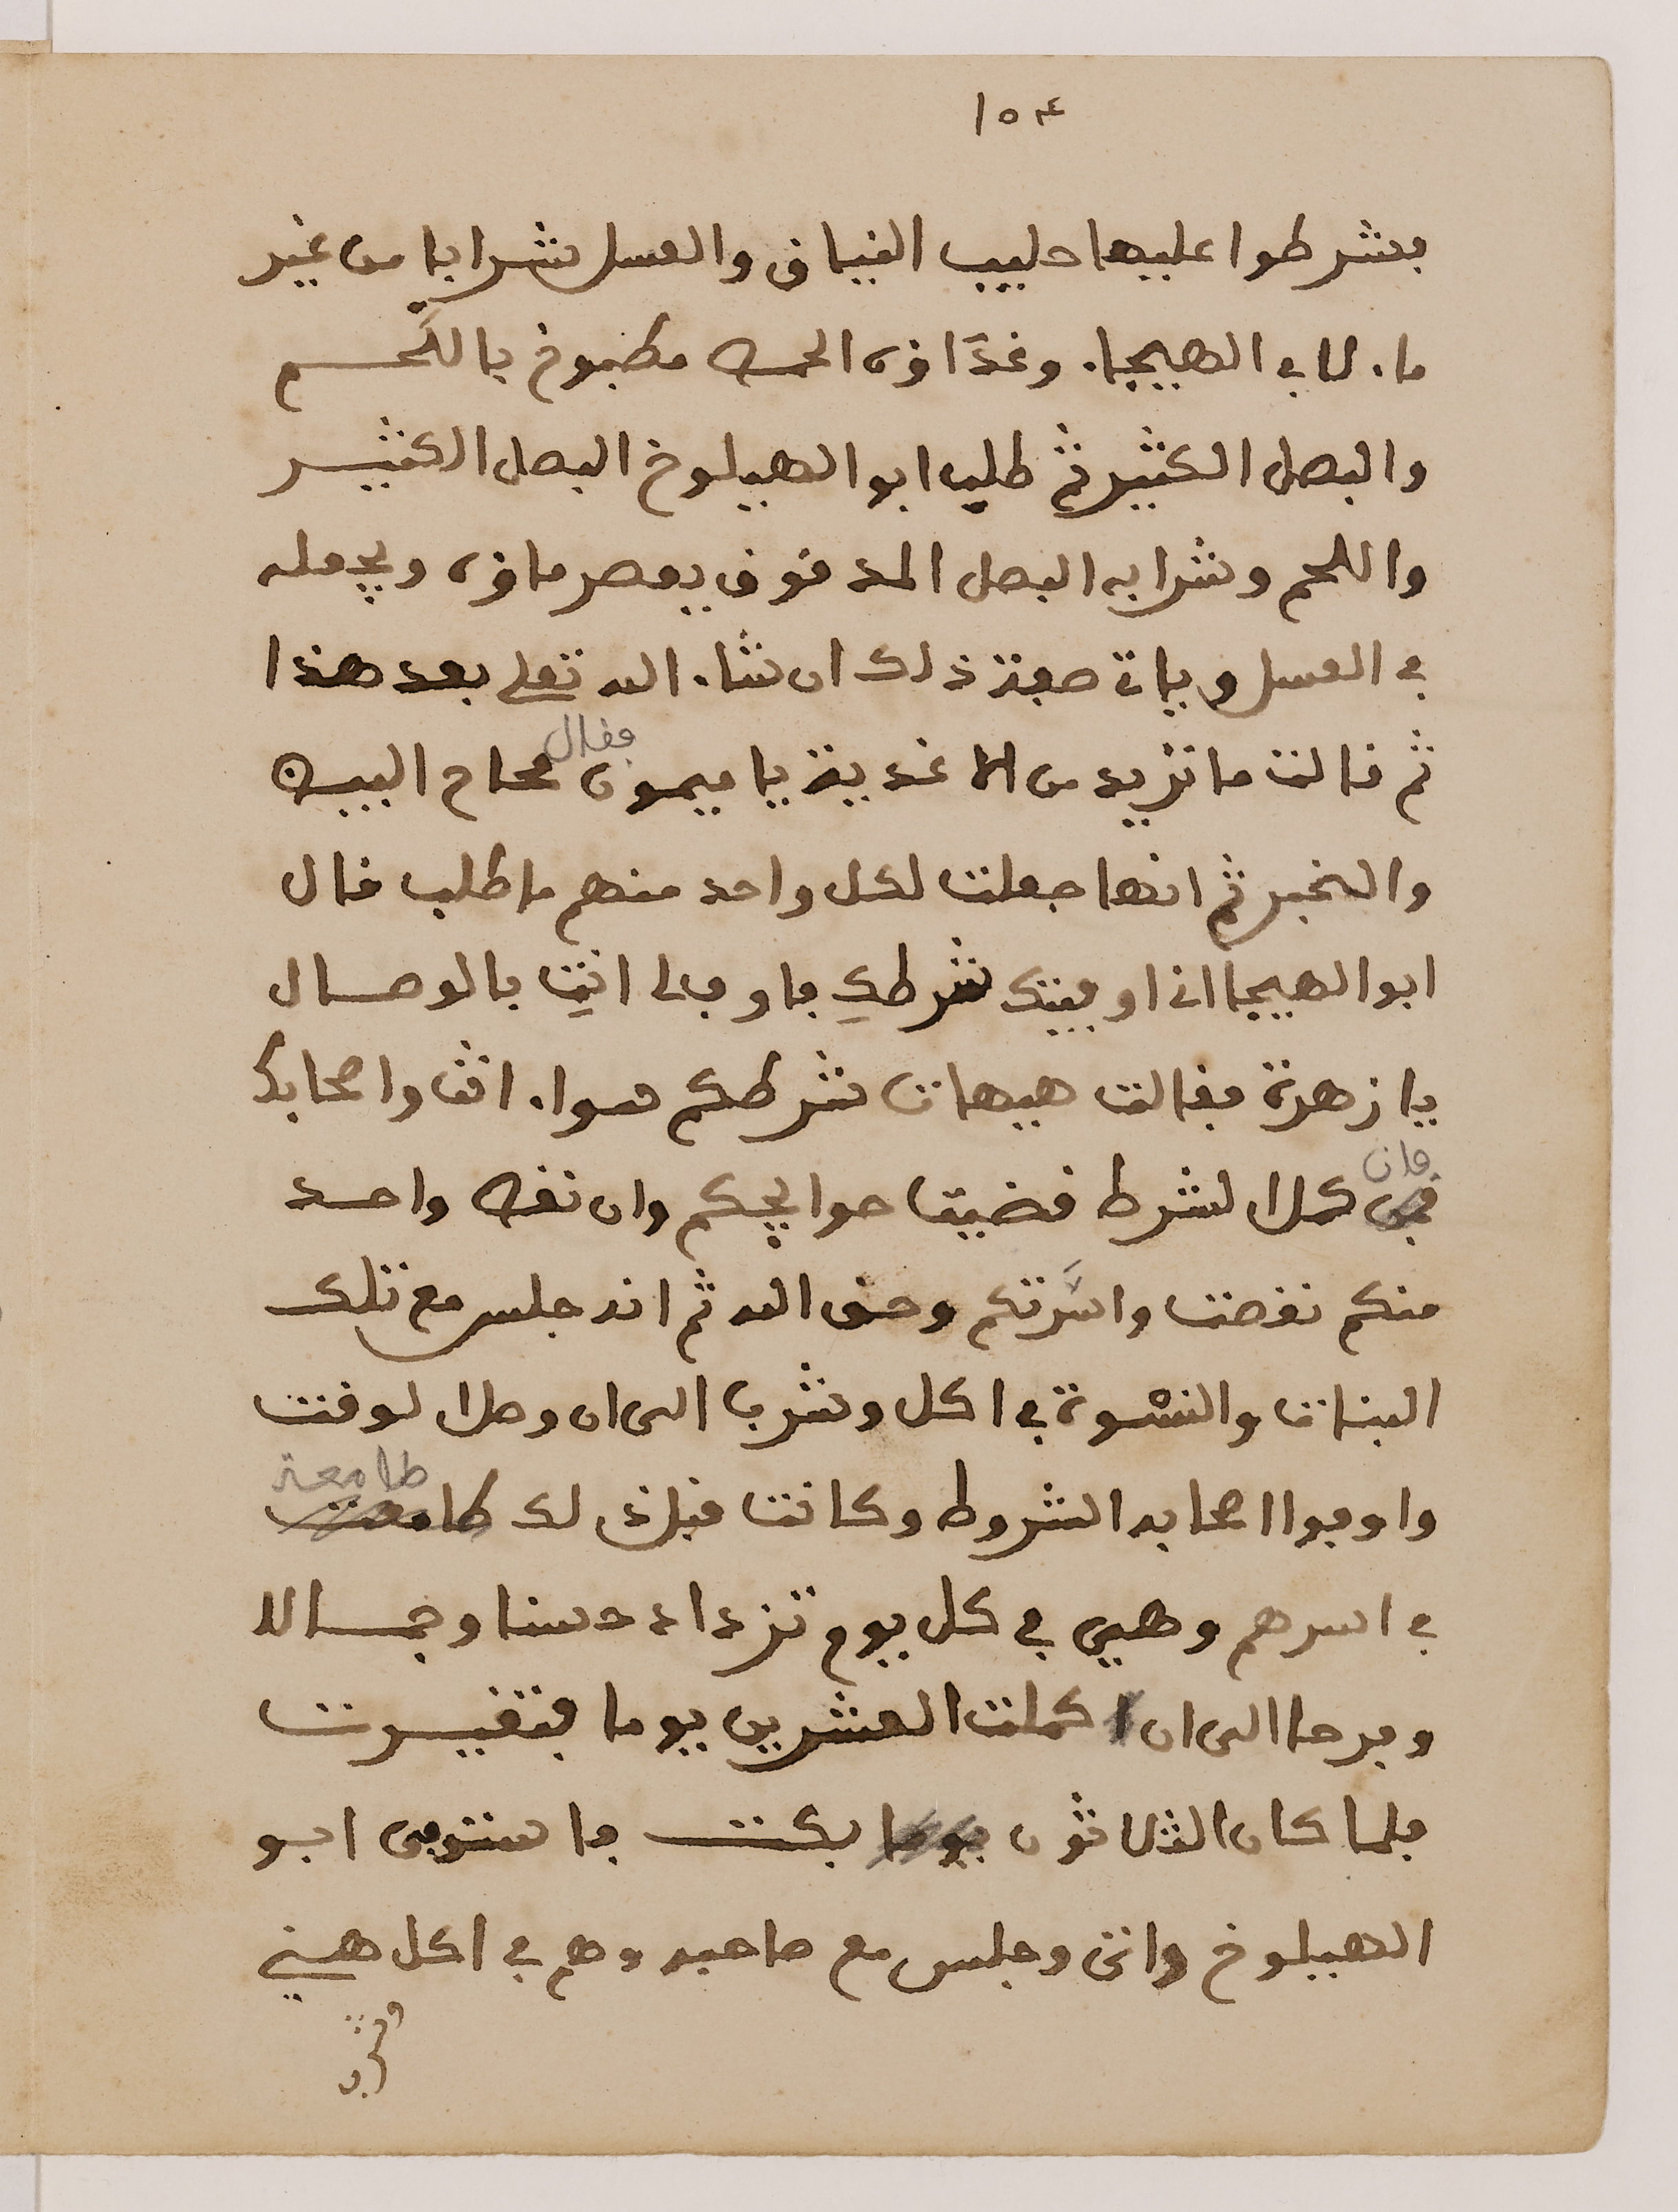 ١٥٤
فشرطوا عليها حليب النياق والعسل شرابا من غير
ماء لابي الهيجاء وغذاؤه الحمص مطبوخ باللحم
والبصل الكثير ثم طلب ابو الهيلوخ البصل الكثير
واللحم وشرابه البصل المدقوق يعصر ماؤه ويجعله
في العسل وياتي صفة ذلك ان شاء الله تعلى بعد هذا
ثم قالت ما تريد من الاغدية يا ميمون فقال محاح البيض
والخبز ثم انها جعلت لكل واحد منهم ما طلب قال
ابو الهيجا انا اوفيتك شرطكِ فاوفى لى انتِ بالوصال
يا زهرة فقالت هيهات شرطكم سواء انت واصحابك
فان كمل الشرط قضيت حوايجكم وان نقص واحد
منكم نقصت واسَرتكم وحق الله ثم انه جلس مع تلك
البنات والنسوة في اكل وشرب الى ان وصل الوقت
واوفوا اصحابه الشروط وكانت قبل ذلك طامعة
في اسرهم وهيي في كل يوم تزداد حسنا وجمالا
وفرحا الى ان كملت العشرين يوما فتغيرت
فلما كان الثلاثون بكت فاستوفى ابو
الهيلوخ واتى وجلس مع صاحبه وهم في اكل هني
وشرب